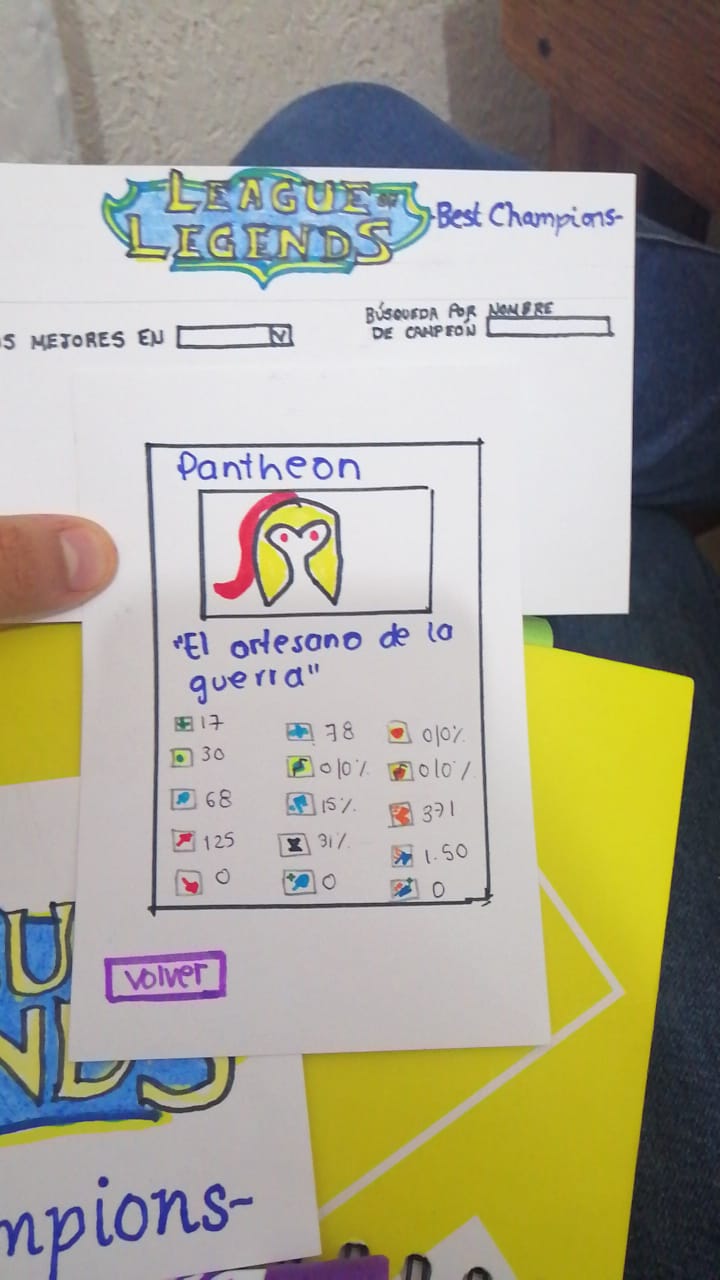 LEAGUE OF
LEGENDS
-Best Champions-
OS MEJORES EN
V
BÚSQUEDA POR NOMBRE
DE CAMPEÓN
Pantheon
"El artesano de la
guerra"
17 78 0|0%
30 0|0% 0|0%
68 15% 371
125 31% 1.50
0 0 0
Volver
U
NDS
mpions-